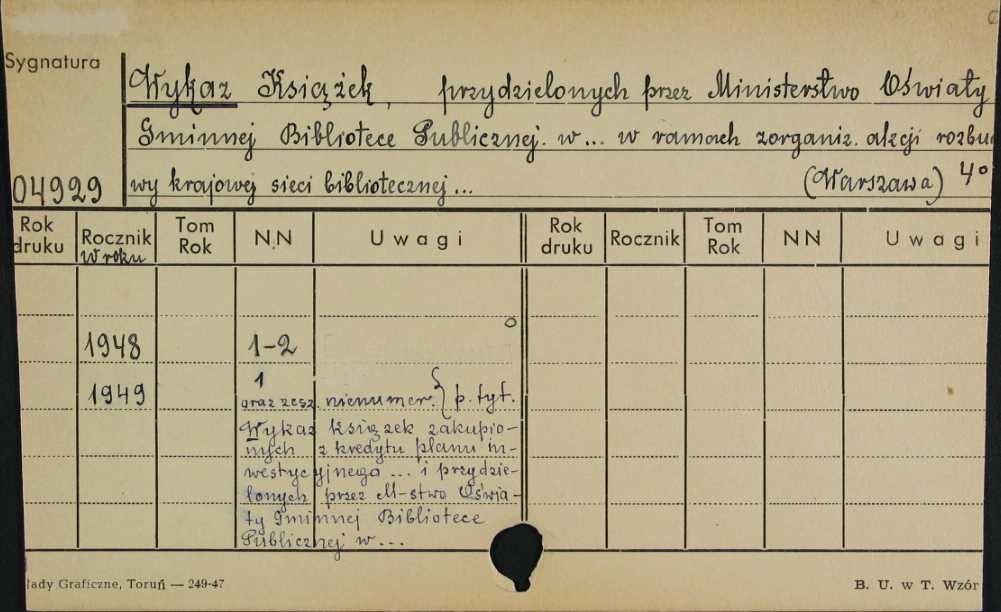 Sygnatura
Wykaz Książek, przydzielonych przez Ministerstwo Oświaty
Gminnej Bibliotece Publicznej. w... w ramach zorganiz. akcji rozbu
04929 wy krajowej sieci bibliotecznej... (Warszawa) 4°
Rok druku Rocznik W roku Tom Rok N.N Uwagi Rok druku Rocznik Tom Rok NN Uwagi
1948 1-2
1949 1
oraz zesz. nienumer. } p. tyt.
Wykaz książek zakupio-
nych z kredytu planu in-
westycyjnego ... i przydzie-
lonych przez M-stwo Oświa-
ty Gminnej Bibliotece
Publicznej w...
łady Graficzne, Toruń — 249-47 B. U. w T. Wzór